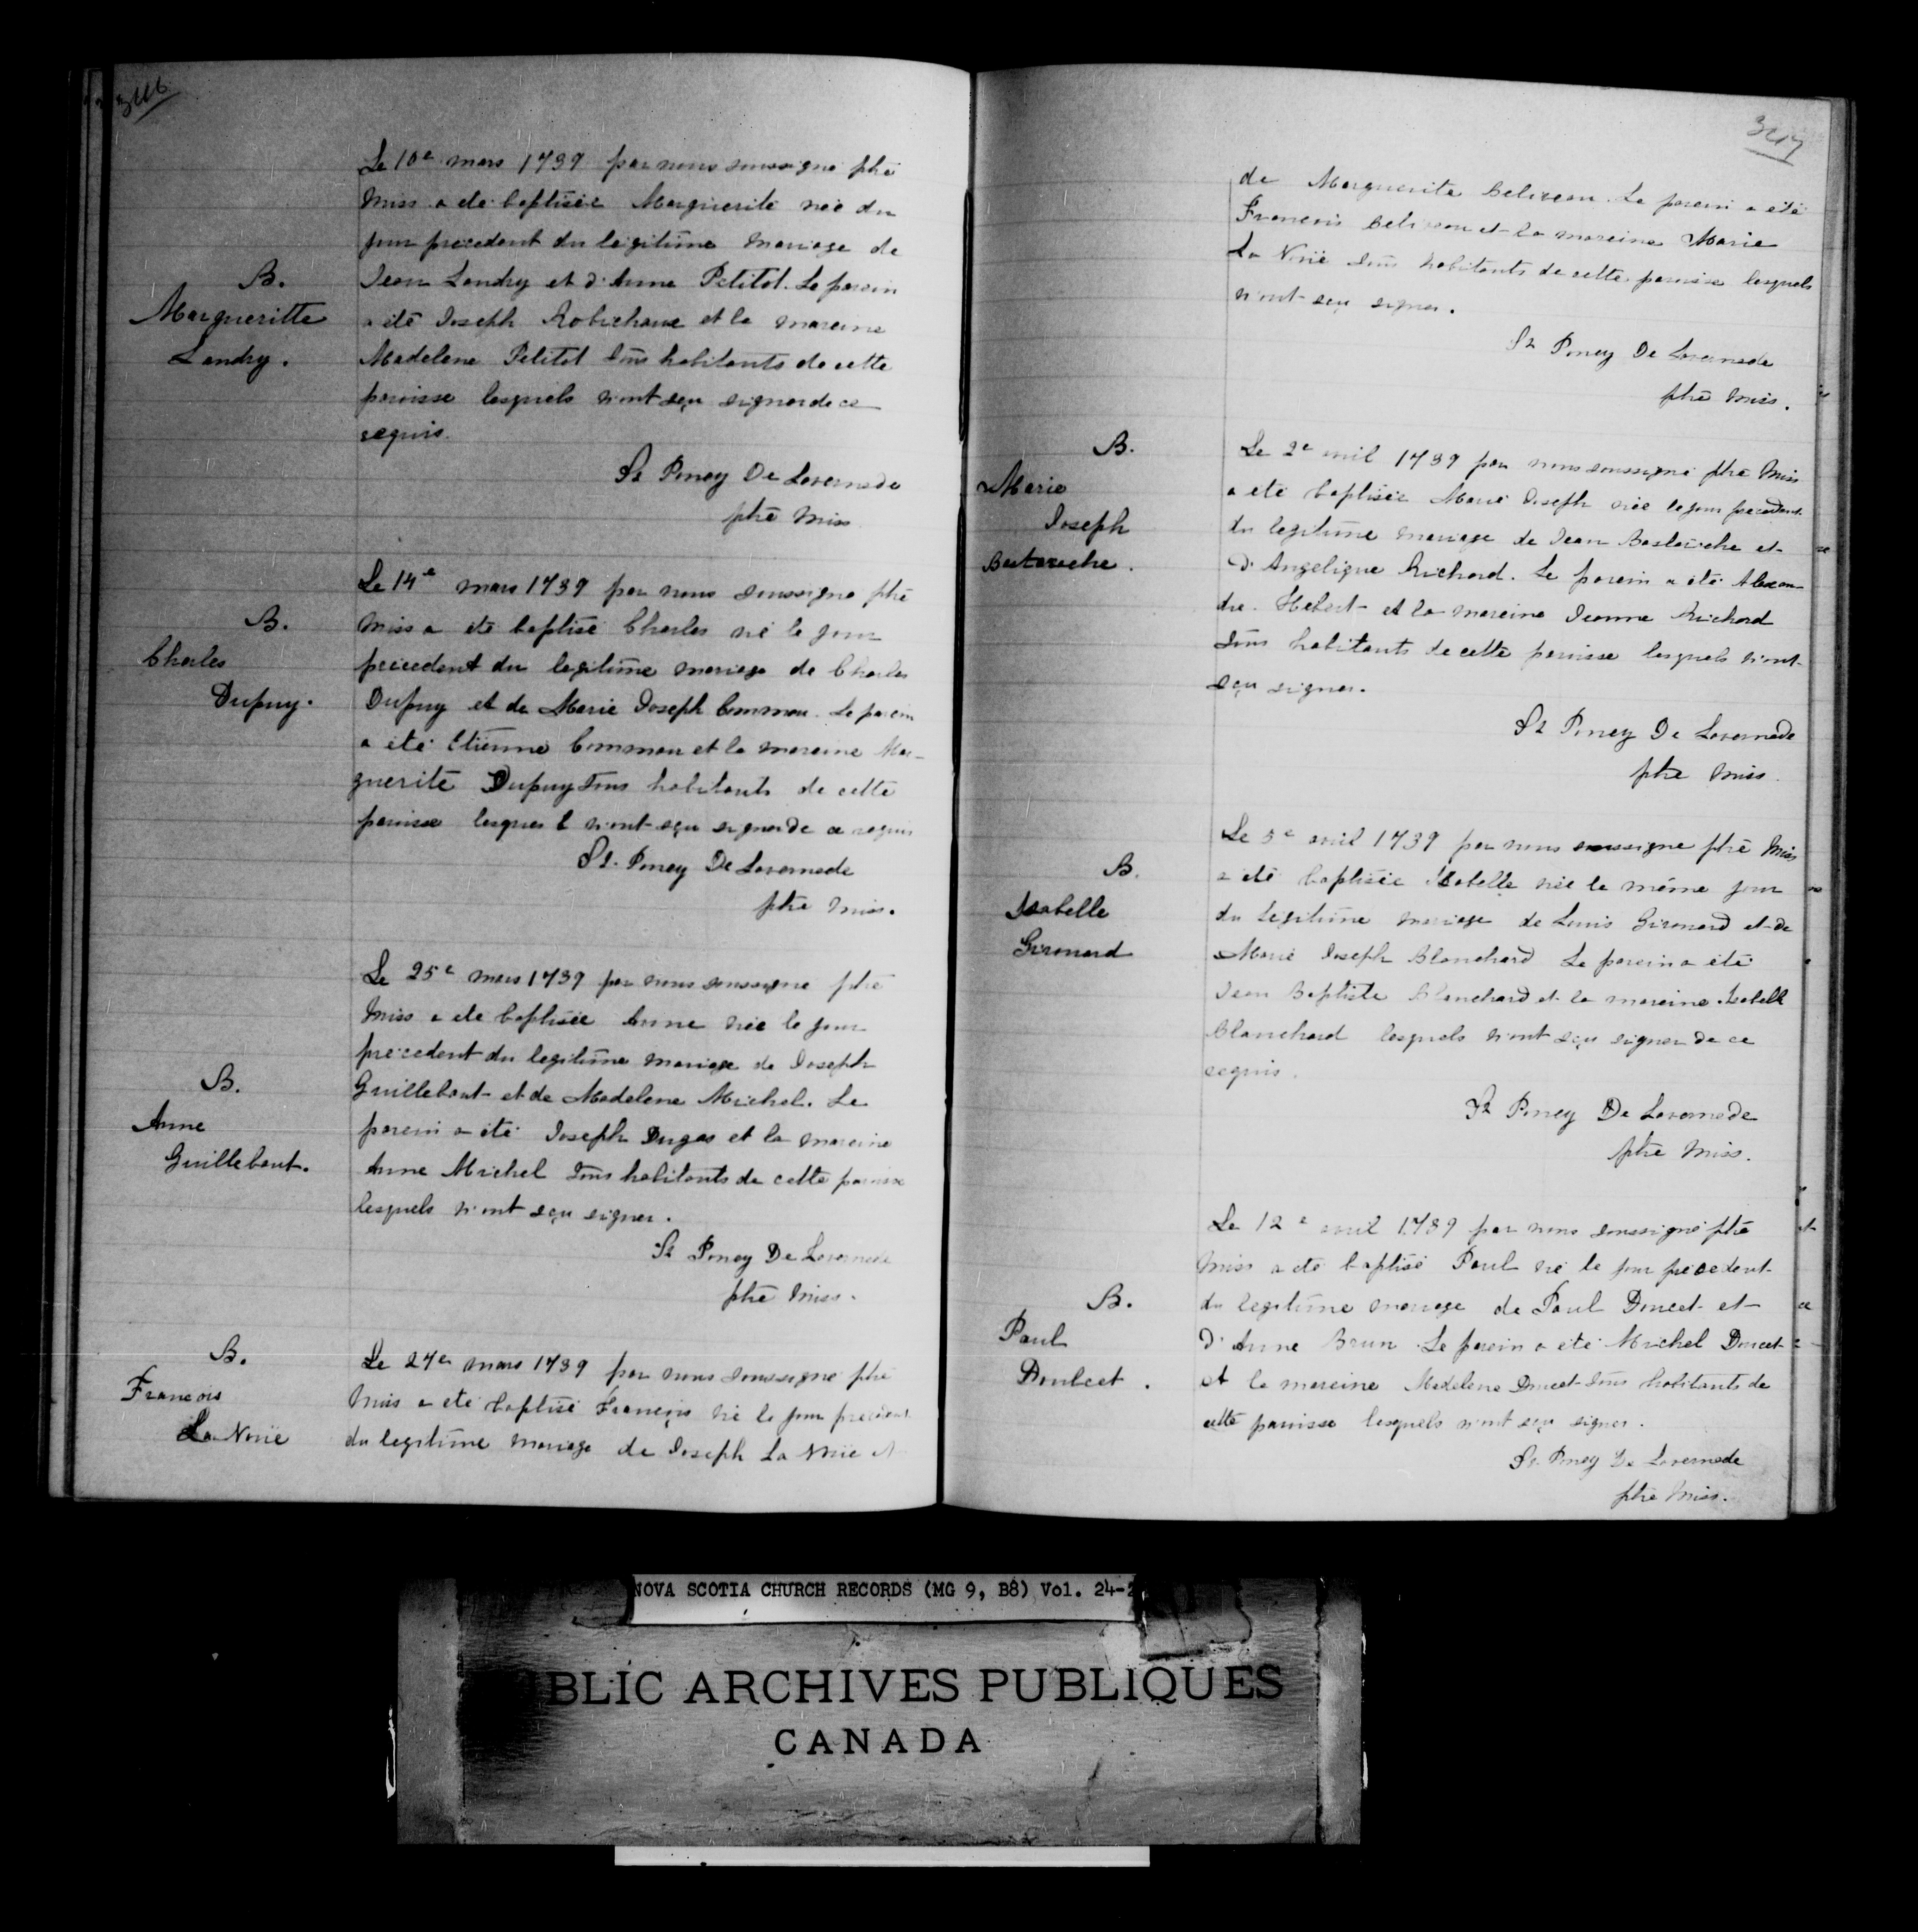 346
Le 10e mars 1739 par nous soussigné ptre
Miss a été baptisée Marguerite née du
jour precedent du legitime mariage de
B.
Margueritte
Landry.
Jean Landry et d'Anne Petitot. Le parein
a été Joseph Robichaux et la mareine
Madelene Petitot tous habitants de cette
paroisse lesquels n'ont sçu signer de ce
requis.
St Poncy De Lavernede
ptre Miss
Le 14e mars 1739 par nous soussigné ptre
B.
Charles
Dupuy.
Miss a été baptisé Charles né le jour
precedent du legitime mariage de Charles
Dupuy et de Marie Joseph Commau. Le parein
a été Etienne Commau et la mareine Mar-
guerite Dupuy tous habitants de cette
paroisse lesquels n'ont sçu signer de ce requis
St. Poncy De Lavernede
ptre Miss.
Le 25e mars 1739 par nous soussigné ptre
Miss a été baptisée Anne née le jour
precedent du legitime mariage de Joseph
B.
Anne
Guillebaut.
Guillebaut et de Madelene Michel. Le
parein a été Joseph Dugas et la mareine
Anne Michel tous habitants de cette paroisse
lesquels n'ont sçu signer.
St Poncy De Lavernede
ptre Miss.
B.
François
La Noüe
Le 27e mars 1739 par nous soussigné ptre
Miss a été baptisé François né le jour precedent
du legitime mariage de Joseph La Noüe et
347
de Marguerite Beliveau. Le parein a été
François Beliveau et la mareine Marie
La Noüe tous habitants de cette paroisse lesquels
n'ont sçu signer.
St Poncy De Lavernede
ptre Miss.
B.
Marie
Joseph
Bastarache.
Le 2e avril 1739 par nous soussigné ptre Miss
a été baptisée Marie Joseph née le jour precedent
du legitime mariage de Jean Bastarache et
d'Angelique Richard. Le parein a été Alexan
dre Hebert et la mareine Jeanne Richard
tous habitants de cette paroisse lesquels n'ont
sçu signer.
St Poncy De Lavernede
ptre Miss.
B.
Isabelle
Girouard
Le 5e avril 1739 par nous soussigné ptre Miss
a été baptisée Isabelle née le même jour
du legitime mariage de Louis Girouard et de
Marie Joseph Blanchard Le parein a été
Jean Baptiste Blanchard et la mareine Isabelle
Blanchard lesquels n'ont sçu signer de ce
requis.
St Poncy De Lavernede
ptre Miss.
Le 12e avril 1739 par nous soussigné ptre
Miss a été baptisé Paul né le jour precedent
B.
Paul
Doulcet.
du legitime mariage de Paul Doucet et
d'Anne Brun. Le parein a été Michel Doucet
et la mareine Madelene Doucet tous habitants de
cette paroisse lesquels n'ont sçu signer.
St. Poncy De Lavernede
ptre Miss.
NOVA SCOTIA CHURCH RECORDS (MG 9, B8) Vol. 24-2
BLIC ARCHIVES PUBLIQUES
CANADA